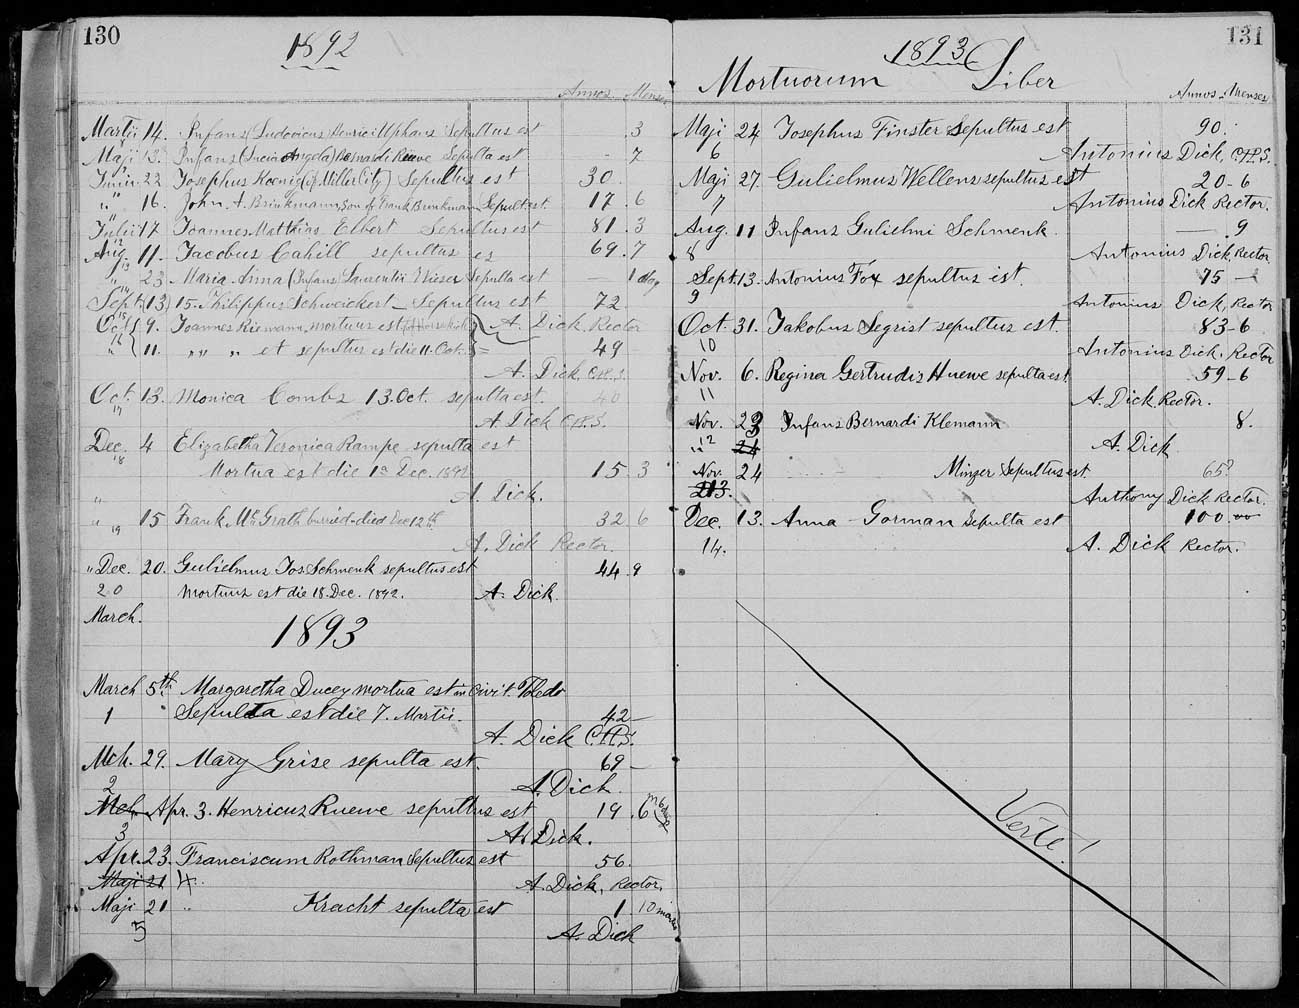 130
1892
Annos Menses
Martii 14. Infans (Ludovicus Henrici Uphaus Sepultus est 3
Maji 13. Infans (Lucia Angela) Bernardi Riewe Sepulta est - 7
Junii 22 Josephus Koenig (of Miller City) Sepultus est 30.
" " 16. John. A. Brinkmann, Son of Frank Brinkmann Sepult. est. 17. 6
11
Julii 17 Joannes Matthias Elbert Sepultus est 81. 3
12
Aug. 11. Jacobus Cahill sepultus es 69. 7
13
" 23. Maria Anna (Infans) Laurentii Wieser Sepulta est — 1 day
14
Sept. (13) 15. Philippus Schweickert — Sepultus est 72
15
Oct. 9. Joannes Riemann, mortuus est A. Dick Rector
16
" 11. " " " et sepultus est die 11. Oct. 49
A. Dick, C.PP.S.
Oct. 13. Monica Combs 13. Oct. sepulta est. 40
17
A. Dick C.PP.S.
Dec. 4 Elizabetha Veronica Rampe sepulta est
18
Mortua est die 1a Dec. 1892 15 3
" A. Dick.
" 15 Frank McGrath burried - died Dec 12th 32 6
19
A. Dick Rector.
" Dec. 20. Gulielmus Jos Schmenk sepultus est 44. 9
20 mortuus est die 18. Dec. 1892. A. Dick.
March.
1893
March 5th Margaretha Ducey mortua est in Civit. Toledo
1 Sepulta est die 7. Martii. 42 —
A. Dick C.PP.S.
Mch. 29. Mary Grise sepulta est. 69 —
2 A. Dick.
Mch. Apr. 3. Henricus Ruewe sepultus est 19. 6
3 A. Dick.
Apr. 23. Franciscum Rothman Sepultus est 56.
Maji 21 4. A. Dick, Rector.
Maji 21 " Kracht sepulta est 1 10 menses
5 A. Dick
131
1893
Mortuorum Liber
Annos - Menses
Maji 24 Josephus Finster Sepultus est 90.
6 Antonius Dick, C.PP.S.
Maji 27. Gulielmus Wellens sepultus est 20 - 6
7 Antonius Dick Rector.
Aug. 11 Infans Gulielmi Schmenk. — 9
8 Antonius Dick, Rector
Sept. 13. Antonius Fox sepultus est. 75 —
9 Antonius Dick, Rector
Oct. 31. Jakobus Segrist sepultus est. 83 - 6
10 Antonius Dick, Rector
Nov. 6. Regina Gertrudis Huewe sepulta est. 59 - 6
11 A. Dick Rector.
Nov. 23 Infans Bernardi Klemann 8.
" 12 24 A. Dick
Nov. 24 Minzer Sepultus est. 65?
213. Anthony Dick Rector.
Dec. 13. Anna Gorman Sepulta est 100. 00
14. A. Dick Rector.
Verte!